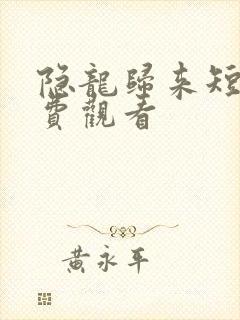 隐龍歸来短
費觀看
黃永平